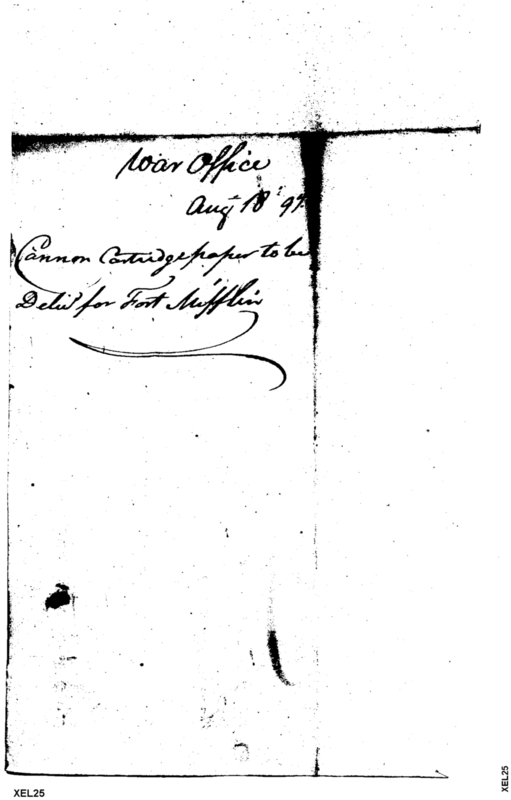 War Office
Augt 18th 97.
Cannon Cartridge paper to be
Delivd for Fort Mifflin
XEL25
XEL25